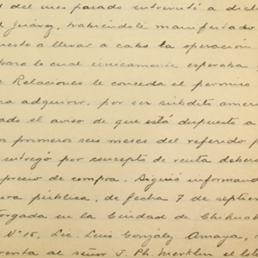 del mes pasado entrevisté a dicho
Juárez, habiéndole manifestado
uesto a llevar a cabo la operación
para lo cual únicamente esperaba
e Relaciones le conceda el permiso
ra adquirir, por ser súbdito ameri
ado el aviso de que está dispuesto a
os primeros seis meses del referido p
entregó por concepto de renta deberá
precio de compra. Siguió informando
ura pública, de fecha 7 de septiem
orgada en la Ciudad de Chihuah
Nº 15, Lic. Luis González Amaya,
venta al señor J. Ph. Merklin el lote